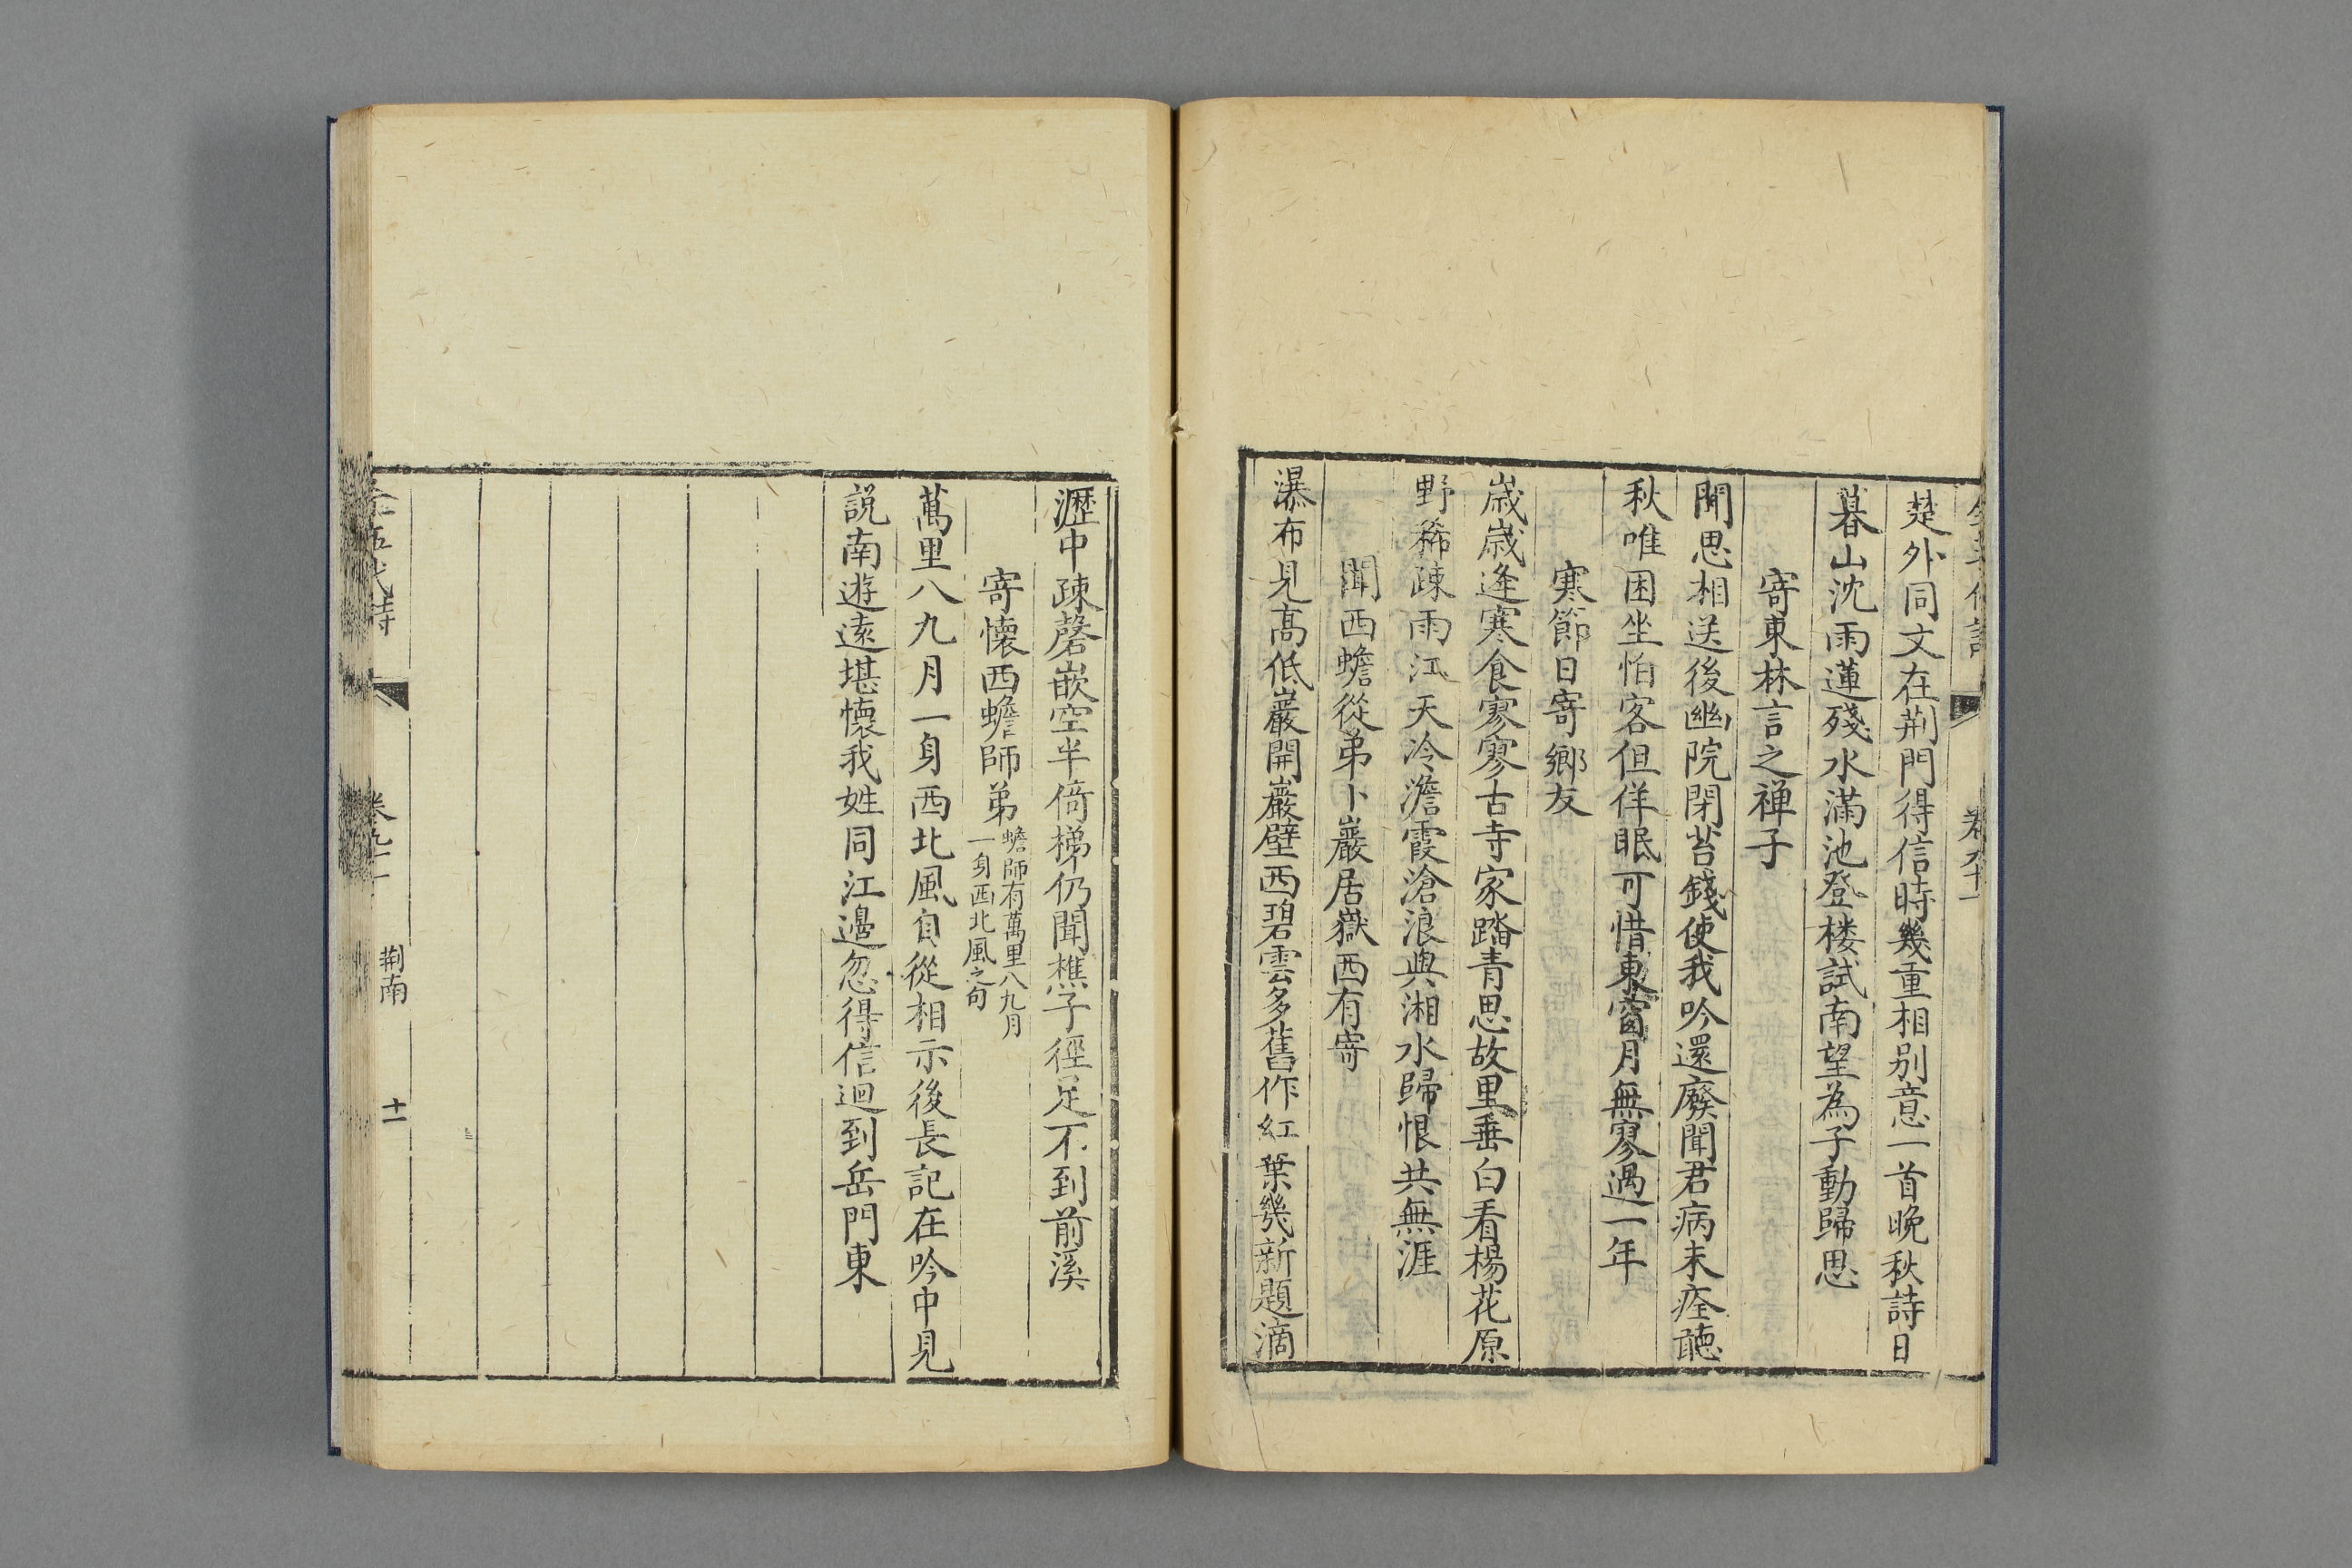 楚外同文在荆門得信時幾重相別意一首晚秋詩日
暮山沈雨蓮殘水滿池登楼試南望為子動歸思
寄東林言之禅子
聞思相送後幽院閉苔錢使我吟還廢聞君病未痊聽
秋唯困坐怕客但佯眠可惜東窗月無寥過一年
寒節日寄鄉友
嵗嵗逢寒食寥寥古寺家踏青思故里垂白看楊花原
野稀疎雨江天冷澹霞滄浪與湘水歸恨共無涯
聞西蟾從弟卜巖居嶽西有寄
瀑布見高低巖開巖壁西碧雲多舊作紅葉幾新題滴
瀝中疎磬嵌空半倚梯仍聞樵子徑足不到前溪
寄懷西蟾師弟
蟾師有萬里八九月
一身西北風之句
萬里八九月一身西北風自從相示後長記在吟中見
說南遊遠堪懷我姓同江邊忽得信迴到岳門東
荆南
十一